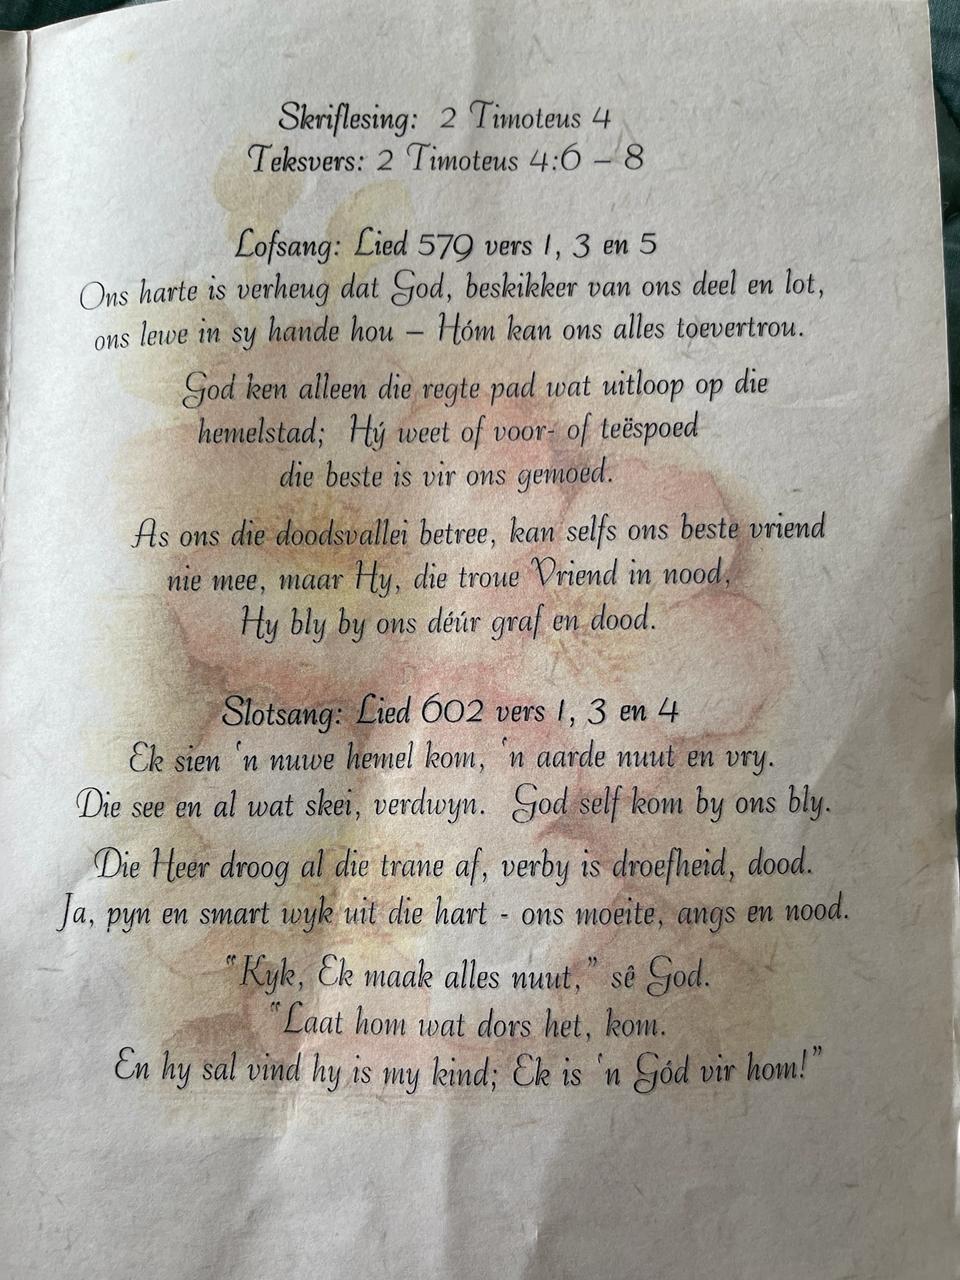 Skriflesing: 2 Timoteus 4
Teksvers: 2 Timoteus 4:6 – 8
Lofsang: Lied 579 vers 1, 3 en 5
Ons harte is verheug dat God, beskikker van ons deel en lot,
ons lewe in sy hande hou – Hóm kan ons alles toevertrou.
God ken alleen die regte pad wat uitloop op die
hemelstad; Hý weet of voor- of teëspoed
die beste is vir ons gemoed.
As ons die doodsvallei betree, kan selfs ons beste vriend
nie mee, maar Hy, die troue Vriend in nood,
Hy bly by ons déúr graf en dood.
Slotsang: Lied 602 vers 1, 3 en 4
Ek sien 'n nuwe hemel kom, 'n aarde nuut en vry.
Die see en al wat skei, verdwyn. God self kom by ons bly.
Die Heer droog al die trane af, verby is droefheid, dood.
Ja, pyn en smart wyk uit die hart - ons moeite, angs en nood.
"Kyk, Ek maak alles nuut," sê God.
"Laat hom wat dors het, kom.
En hy sal vind hy is my kind; Ek is 'n Gód vir hom!"